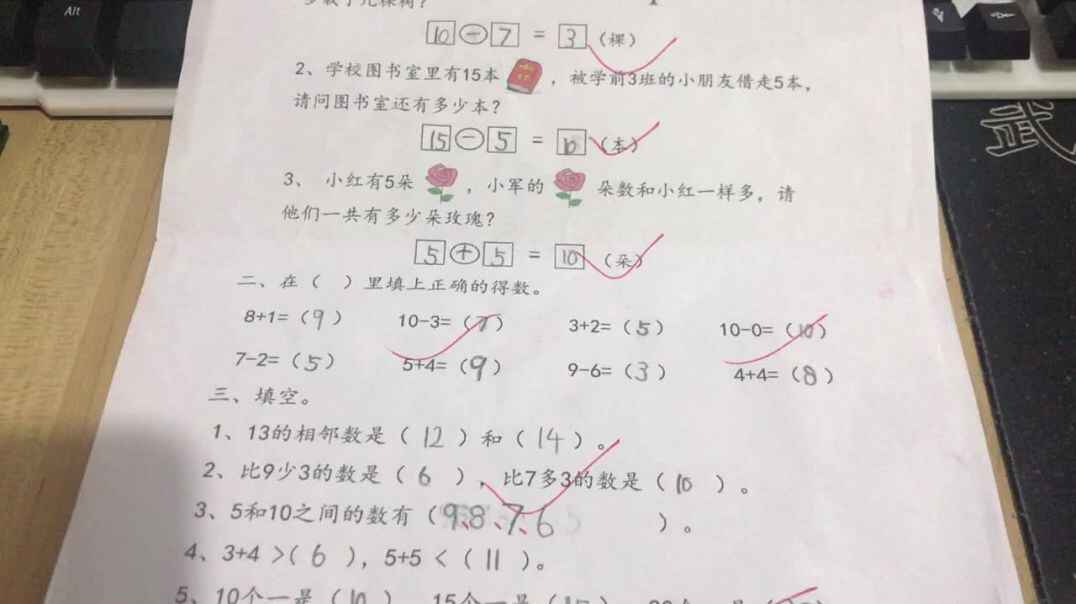 Alt
武
10 - 7 = 3（棵）
2、学校图书室里有15本，被学前3班的小朋友借走5本，
请问图书室还有多少本？
15 - 5 = 10（本）
3、小红有5朵，小军的朵数和小红一样多，请
他们一共有多少朵玫瑰？
5 + 5 = 10（朵）
二、在（ ）里填上正确的得数。
8+1=（9） 10-3=（7） 3+2=（5） 10-0=（10）
7-2=（5） 5+4=（9） 9-6=（3） 4+4=（8）
三、填空。
1、13的相邻数是（12）和（14）。
2、比9少3的数是（6），比7多3的数是（10）。
3、5和10之间的数有（9、8、7、6）。
4、3+4 >（6），5+5 <（11）。
5、10个一是（10） 15个一是（15）